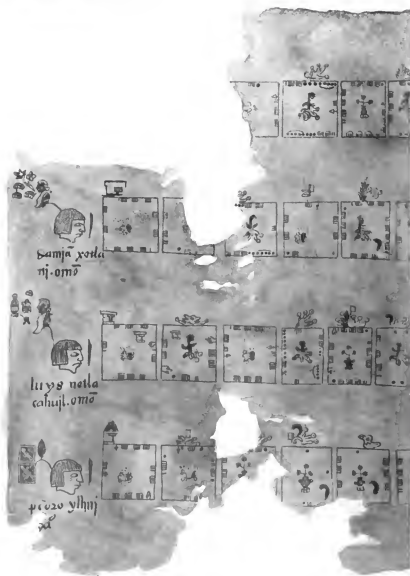 damiã xotla
nj.omõ
luys notla
cahujl.omõ
pedro ylhuj